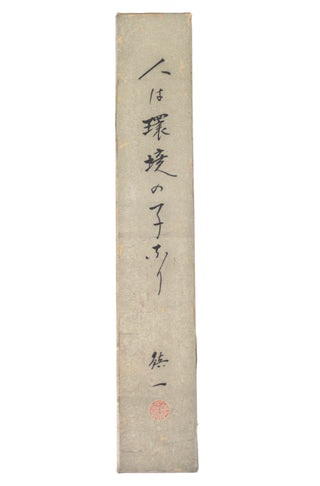 人は環境の子なり
鎮一